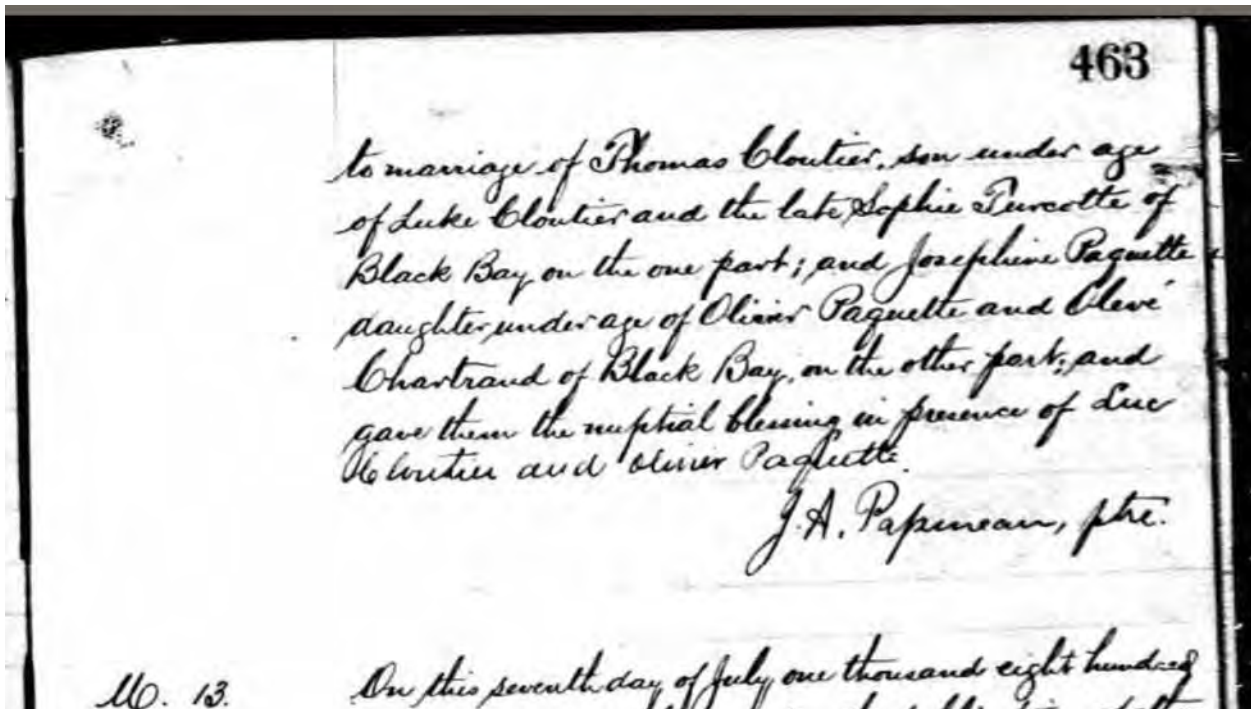 463
to marriage of Thomas Cloutier, son under age
of Luke Cloutier and the late Sophie Turcotte of
Black Bay on the one part; and Josephine Paquette
daughter under age of Olivier Paquette and Olevé
Chartrand of Black Bay, on the other part; and
gave them the nuptial blessing in presence of Luc
Cloutier and Olivier Paquette.
J. A. Papineau, ptre.
M. 13.
On this seventh day of July, one thousand eight hundred